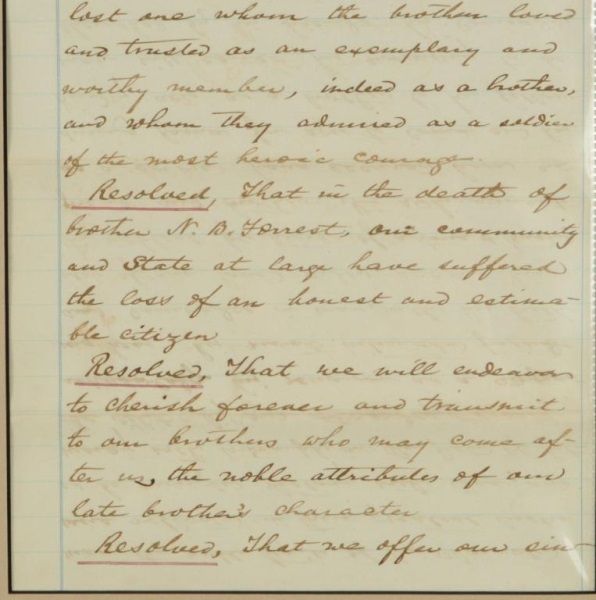 lost one whom the brother loved
and trusted as an exemplary and
worthy member, indeed as a brother,
and whom they admired as a soldier
of the most heroic courage.
Resolved, That in the death of
brother N. B. Forrest, our community
and State at large have suffered
the loss of an honest and estima-
ble citizen
Resolved, That we will endeavor
to cherish forever and transmit
to our brothers who may come af-
ter us, the noble attributes of our
late brother's character
Resolved, That we offer our sin-